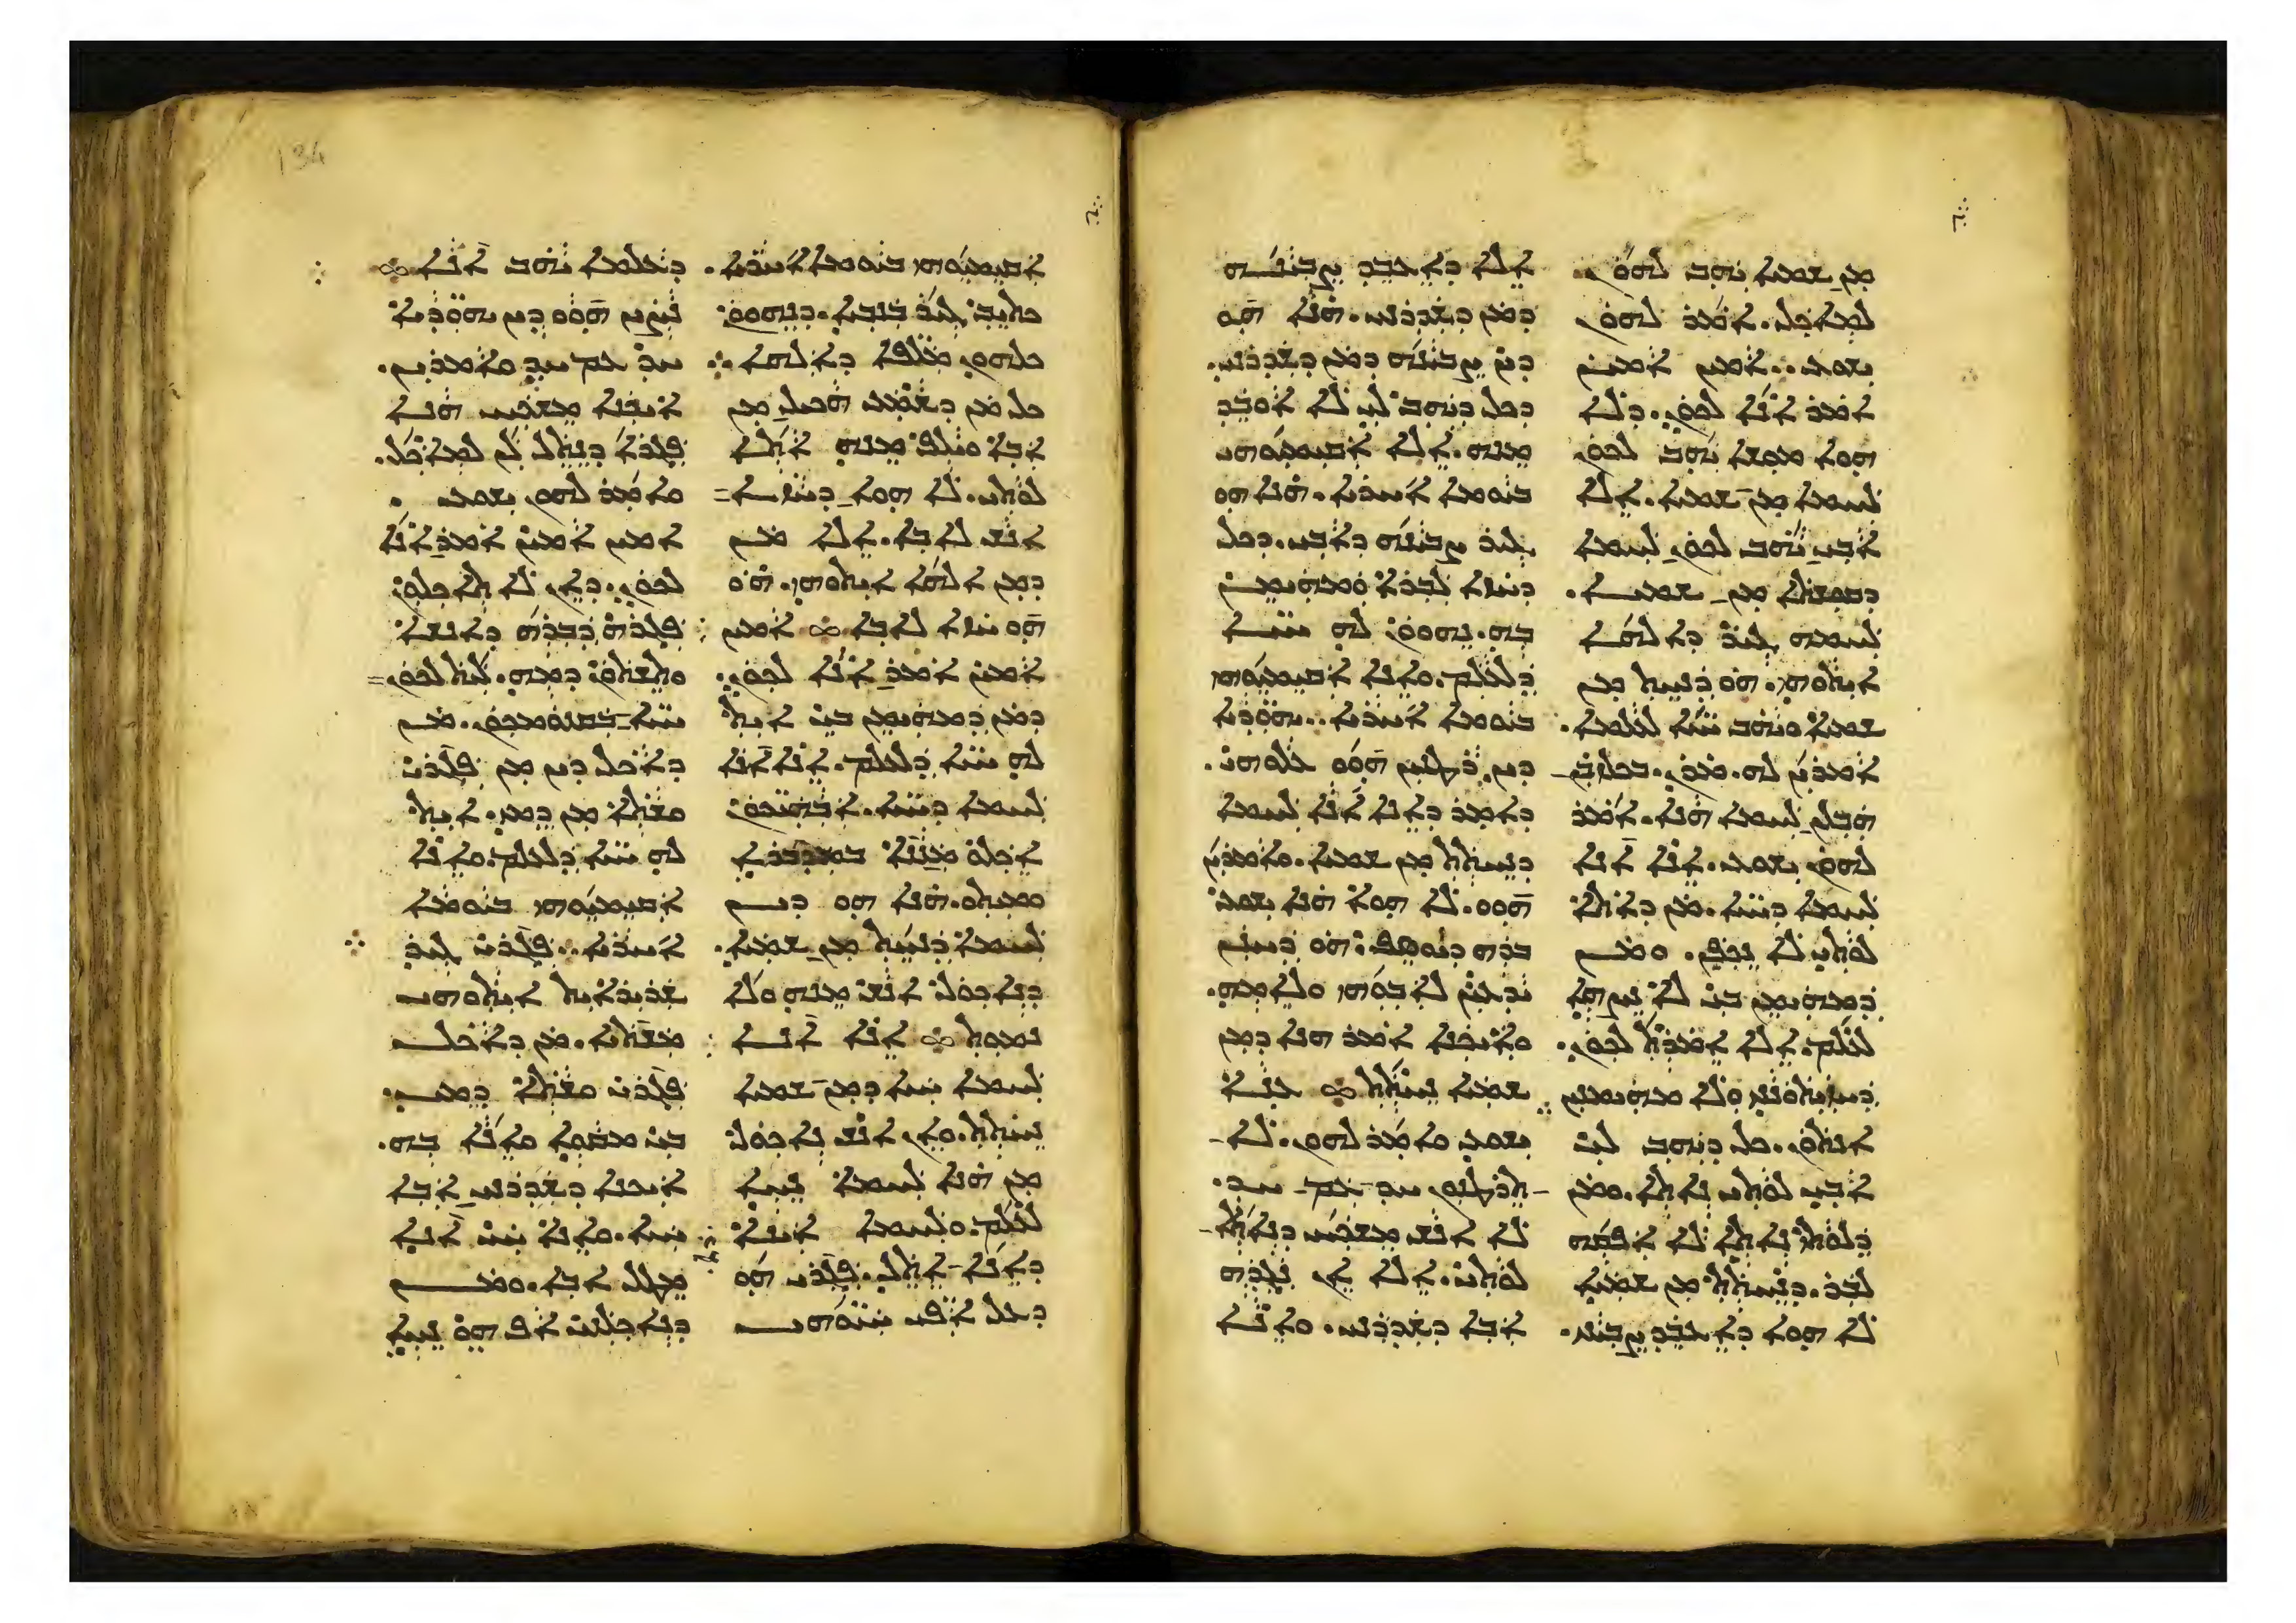 ܡܢ ܫܡܝܐ ܝܗܒ ܠܗܘܢ
ܠܡܐܟܠ. ܐܡܪ ܠܗܘܢ
ܝܫܘܥ. ܐܡܝܢ ܐܡܝܢ
ܐܡܪ ܐܢܐ ܠܟܘܢ. ܕܠܐ
ܗܘܐ ܡܘܫܐ ܝܗܒ ܠܟܘܢ
ܠܚܡܐ ܡܢ ܫܡܝܐ. ܐܠܐ
ܐܒܝ ܝܗܒ ܠܟܘܢ ܠܚܡܐ
ܕܩܘܫܬܐ ܡܢ ܫܡܝܐ.
ܠܚܡܗ ܓܝܪ ܕܐܠܗܐ
ܐܝܬܘܗܝ. ܗܘ ܕܢܚܬ ܡܢ
ܫܡܝܐ ܘܝܗܒ ܚܝܐ ܠܥܠܡܐ.
ܐܡܪܝܢ ܠܗ. ܡܪܢ. ܒܟܠܙܒܢ
ܗܒ ܠܢ ܠܚܡܐ ܗܢܐ. ܐܡܪ
ܠܗܘܢ ܝܫܘܥ. ܐܢܐ ܐܢܐ
ܠܚܡܐ ܕܚܝܐ. ܡܢ ܕܐܬܐ
ܠܘܬܝ ܠܐ ܢܟܦܢ. ܘܡܢ
ܕܡܗܝܡܢ ܒܝ ܠܐ ܢܨܗܐ
ܠܥܠܡ. ܐܠܐ ܐܡܪܬ ܠܟܘܢ.
ܕܚܙܝܬܘܢܢܝ ܘܠܐ ܡܗܝܡܢܝܢ
ܐܢܬܘܢ. ܟܠ ܕܝܗܒ ܠܝ
ܐܒܝ ܠܘܬܝ ܢܐܬܐ. ܘܡܢ
ܕܠܘܬܝ ܢܐܬܐ ܠܐ ܐܦܩܗ
ܠܒܪ. ܕܢܚܬܬ ܡܢ ܫܡܝܐ
ܠܐ ܗܘܐ ܕܐܥܒܕ ܨܒܝܢܝ.
ܐܠܐ ܕܐܥܒܕ ܨܒܝܢܗ
ܕܡܢ ܕܫܕܪܢܝ. ܗܢܐ ܗܘ
ܕܝܢ ܨܒܝܢܗ ܕܡܢ ܕܫܕܪܢܝ.
ܕܟܠ ܕܝܗܒ ܠܝ ܠܐ ܐܘܒܕ
ܡܢܗ. ܐܠܐ ܐܩܝܡܝܘܗܝ
ܒܝܘܡܐ ܐܚܪܝܐ. ܗܢܐ ܗܘ
ܓܝܪ ܨܒܝܢܗ ܕܐܒܝ. ܕܟܠ
ܕܚܙܐ ܠܒܪܐ ܘܡܗܝܡܢ
ܒܗ. ܢܗܘܘܢ ܠܗ ܚܝܐ
ܕܠܥܠܡ. ܘܐܢܐ ܐܩܝܡܝܘܗܝ
ܒܝܘܡܐ ܐܚܪܝܐ. ܝܗܘܕܝܐ
ܕܝܢ ܪܛܢܝܢ ܗܘܘ ܥܠܘܗܝ.
ܕܐܡܪ ܕܐܢܐ ܐܢܐ ܠܚܡܐ
ܕܢܚܬܬ ܡܢ ܫܡܝܐ. ܘܐܡܪܝܢ
ܗܘܘ. ܠܐ ܗܘܐ ܗܢܐ ܝܫܘܥ
ܒܪܗ ܕܝܘܣܦ. ܗܘ ܕܚܢܢ
ܝܕܥܝܢ ܠܐܒܘܗܝ ܘܠܐܡܗ.
ܘܐܝܟܢܐ ܐܡܪ ܗܢܐ ܕܡܢ
ܫܡܝܐ ܢܚܬܬ ܥܢܐ
ܝܫܘܥ ܘܐܡܪ ܠܗܘܢ. ܠܐ
ܬܪܛܢܘܢ ܚܕ ܥܡ ܚܕ.
ܠܐ ܐܢܫ ܡܫܟܚ ܕܢܐܬܐ
ܠܘܬܝ. ܐܠܐ ܐܢ ܢܓܕܗ
ܐܒܐ ܕܫܕܪܢܝ. ܘܐܢܐ
ܐܩܝܡܝܘܗܝ ܒܝܘܡܐ ܐܚܪܝܐ.
ܟܬܝܒ ܓܝܪ ܒܢܒܝܐ. ܕܢܗܘܘܢ
ܟܠܗܘܢ ܡܠܦܐ ܕܐܠܗܐ
ܟܠ ܡܢ ܕܫܡܥ ܗܟܝܠ ܡܢ
ܐܒܐ ܘܝܠܦ ܡܢܗ ܐܬܐ
ܠܘܬܝ. ܠܐ ܗܘܐ ܕܚܙܐ
ܐܢܫ ܠܐܒܐ. ܐܠܐ ܡܢ
ܕܡܢ ܐܠܗܐ ܐܝܬܘܗܝ. ܗܘ
ܗܘ ܚܙܐ ܠܐܒܐ ܐܡܝܢ
ܐܡܝܢ ܐܡܪ ܐܢܐ ܠܟܘܢ.
ܕܡܢ ܕܡܗܝܡܢ ܒܝ ܐܝܬ
ܠܗ ܚܝܐ ܕܠܥܠܡ. ܐܢܐ ܐܢܐ
ܠܚܡܐ ܕܚܝܐ. ܐܒܗܝܟܘܢ
ܐܟܠܘ ܡܢܢܐ ܒܡܕܒܪܐ
ܘܡܝܬܘ. ܗܢܐ ܗܘ ܕܝܢ
ܠܚܡܐ ܕܢܚܬ ܡܢ ܫܡܝܐ.
ܕܢܐܟܘܠ ܐܢܫ ܡܢܗ ܘܠܐ
ܢܡܘܬ ܐܢܐ ܐܢܐ
ܠܚܡܐ ܚܝܐ ܕܡܢ ܫܡܝܐ
ܢܚܬܬ. ܘܐܢ ܐܢܫ ܢܐܟܘܠ
ܡܢ ܗܢܐ ܠܚܡܐ ܢܚܐ
ܠܥܠܡ. ܘܠܚܡܐ ܐܝܢܐ
ܕܐܢܐ ܐܬܠ. ܦܓܪܝ ܗܘ
ܕܥܠ ܐܦܝ ܚܝܘܗܝ
ܕܥܠܡܐ ܝܗܒ ܐܢܐ
ܢܨܝܢ ܗܘܘ ܕܝܢ ܝܗܘܕܝܐ
ܚܕ ܥܡ ܚܕ ܘܐܡܪܝܢ.
ܐܝܟܢܐ ܡܫܟܚ ܗܢܐ
ܦܓܪܗ ܕܢܬܠ ܠܢ ܠܡܐܟܠ.
ܘܐܡܪ ܠܗܘܢ ܝܫܘܥ.
ܐܡܝܢ ܐܡܝܢ ܐܡܪ ܐܢܐ
ܠܟܘܢ. ܕܐܢ ܠܐ ܬܐܟܠܘܢ
ܦܓܪܗ ܕܒܪܗ ܕܐܢܫܐ
ܘܬܫܬܘܢ ܕܡܗ. ܠܝܬ ܠܟܘܢ
ܚܝܐ ܒܩܢܘܡܟܘܢ. ܡܢ
ܕܐܟܠ ܕܝܢ ܡܢ ܦܓܪܝ
ܘܫܬܐ ܡܢ ܕܡܝ. ܐܝܬ
ܠܗ ܚܝܐ ܕܠܥܠܡ. ܘܐܢܐ
ܐܩܝܡܝܘܗܝ ܒܝܘܡܐ
ܐܚܪܝܐ. ܦܓܪܝ ܓܝܪ
ܫܪܝܪܐܝܬ ܐܝܬܘܗܝ
ܡܐܟܘܠܬܐ. ܘܕܡܝ ܫܪܝܪܐܝܬ
ܐܝܬܘܗܝ ܡܫܬܝܐ. ܡܢ ܕܐܟܠ
ܦܓܪܝ ܘܫܬܐ ܕܡܝ.
ܒܝ ܡܩܘܐ ܘܐܢܐ ܒܗ.
ܐܝܟܢܐ ܕܫܕܪܢܝ ܐܒܐ
ܚܝܐ. ܘܐܢܐ ܚܝ ܐܢܐ
ܡܛܠ ܐܒܐ. ܘܡܢ
ܕܢܐܟܠܢܝ ܐܦ ܗܘ ܢܚܐ